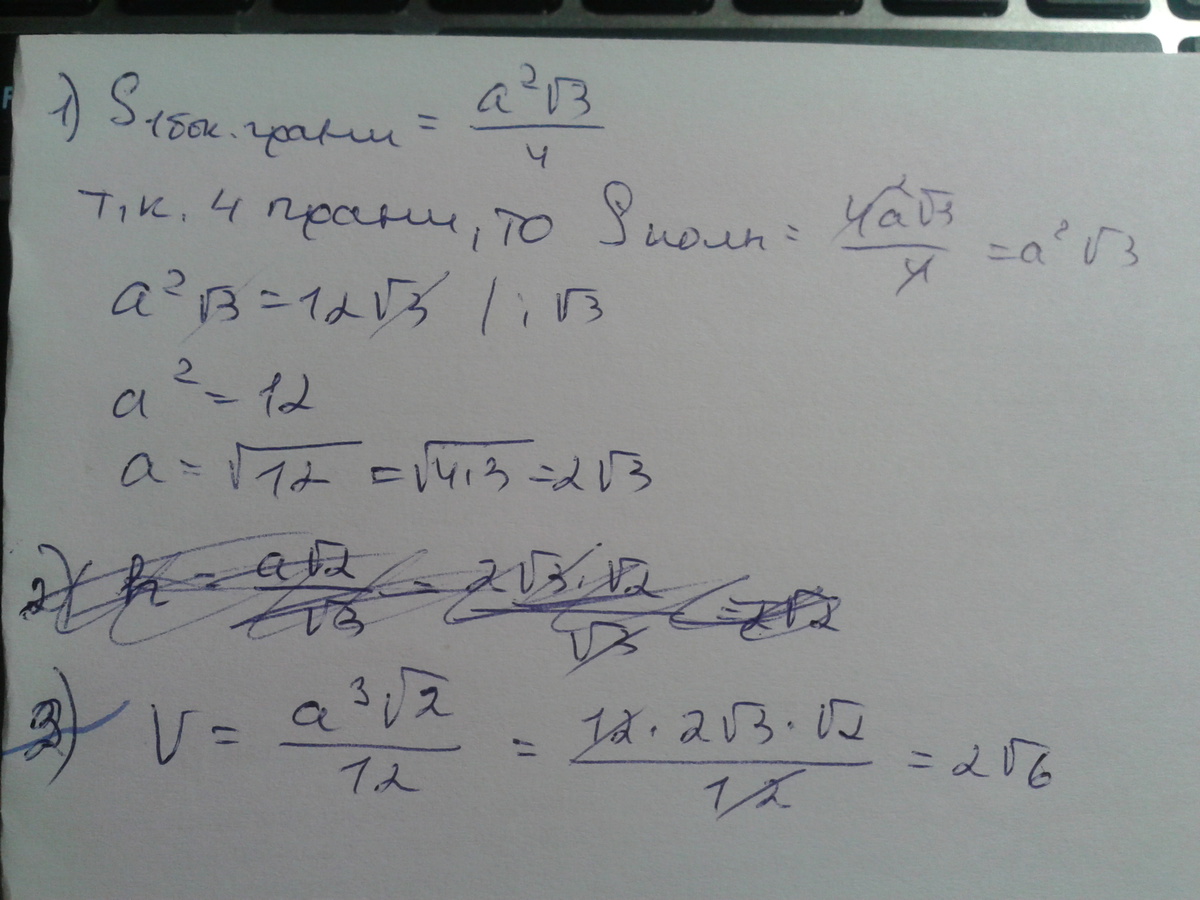 1) S 1 бок. грани = a²√3 / 4
т.к. 4 грани, то S полн = 4a²√3 / 4 = a²√3
a²√3 = 12√3 / : √3
a² = 12
a = √12 = √4·3 = 2√3
2) h = a√2 / √3 = 2√3·√2 / √3 = 2√2
2) V = a³√2 / 12 = 12·2√3·√2 / 12 = 2√6